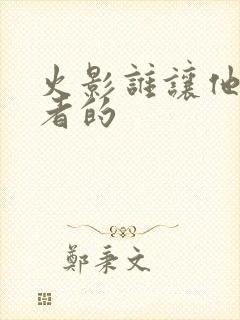 火影誰讓他
者的
鄭秉文